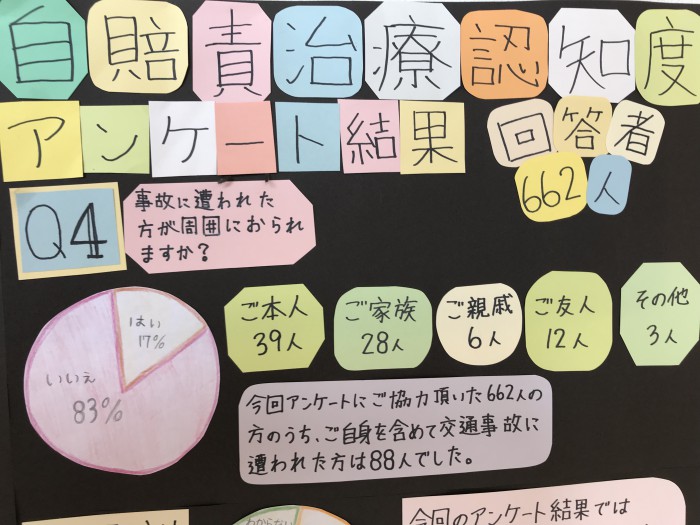 自賠責治療認知度
アンケート結果
回答者
662人
Q4
事故に遭われた
方が周囲におられ
ますか?
はい
17%
いいえ
83%
ご本人
39人
ご家族
28人
ご親戚
6人
ご友人
12人
その他
3人
今回アンケートにご協力頂いた662人の
方のうち、ご自身を含めて交通事故に
遭われた方は88人でした。
わからない
今回のアンケート結果では